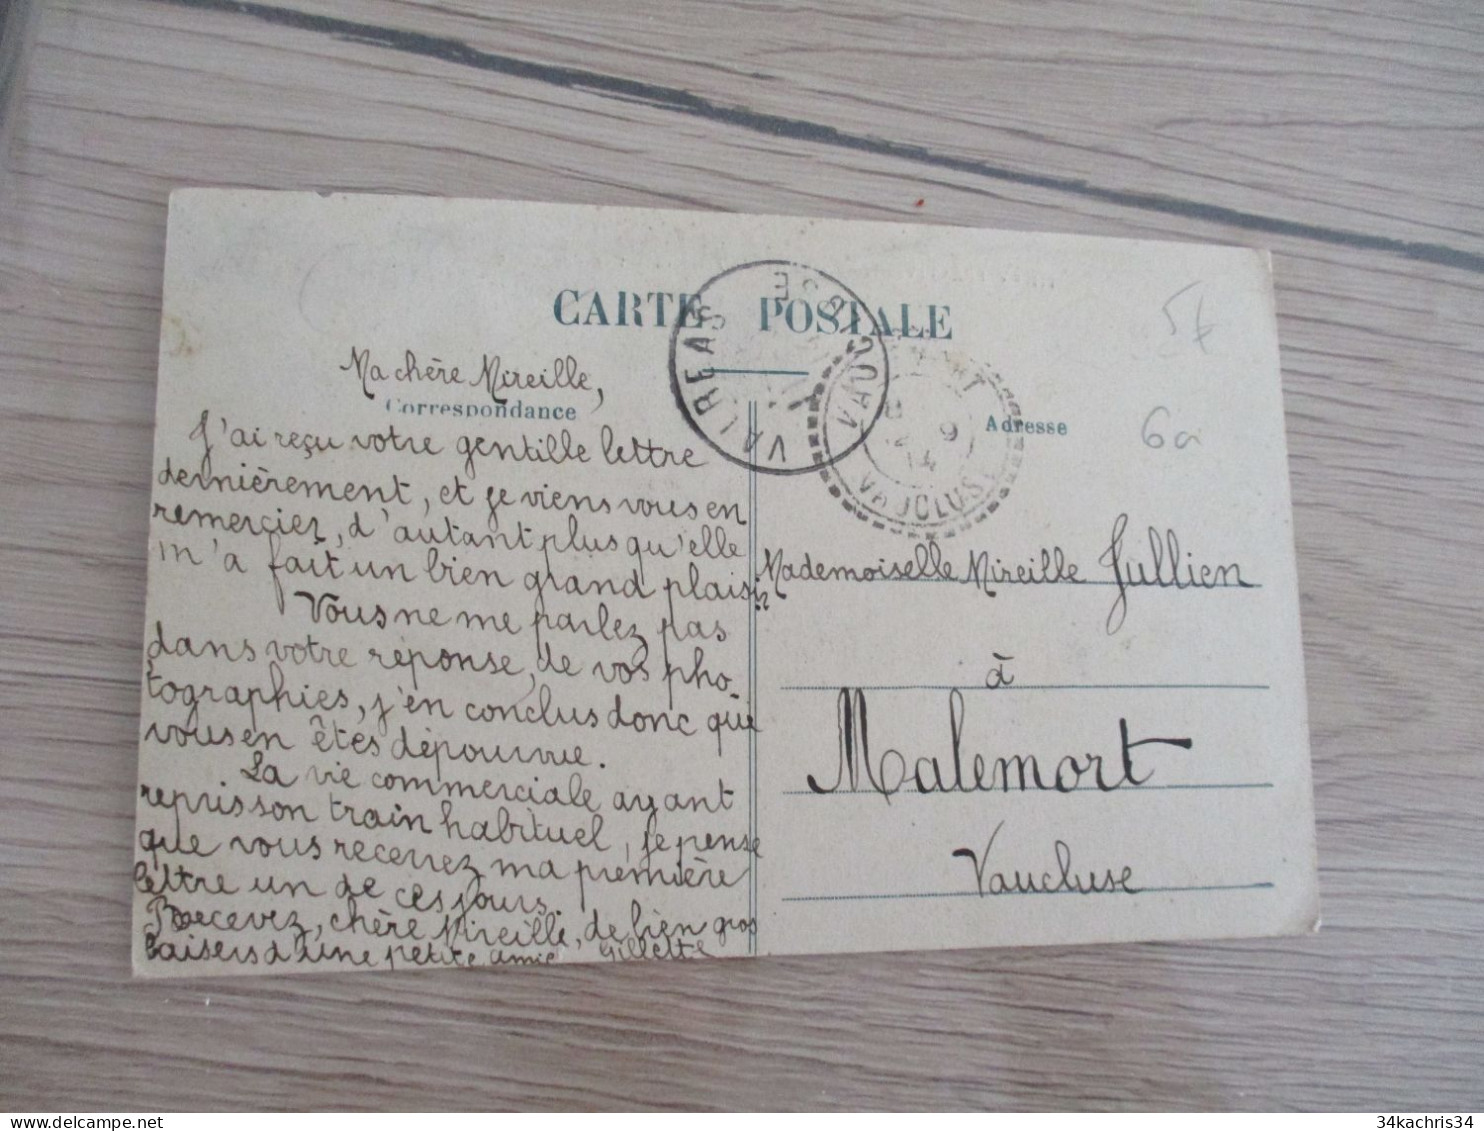 CARTE POSTALE
VALREAS VAUCLUSE
VAUCLUSE
9
14
5€
6a
Ma chère Mireille,
Correspondance
Adresse
J'ai reçu votre gentille lettre
dernièrement, et je viens vous en
remercier, d'autant plus qu'elle
m'a fait un bien grand plaisir
Vous ne me parlez pas
dans votre réponse, de vos pho-
tographies, j'en conclus donc que
vous en êtes dépourvue.
La vie commerciale ayant
repris son train habituel, je pense
que vous recevrez ma première
lettre un de ces jours.
Recevez, chère Mireille, de bien gros
baisers d'une petite amie Gillette
Mademoiselle Mireille Jullien
à
Malemort
Vaucluse
34kachris34